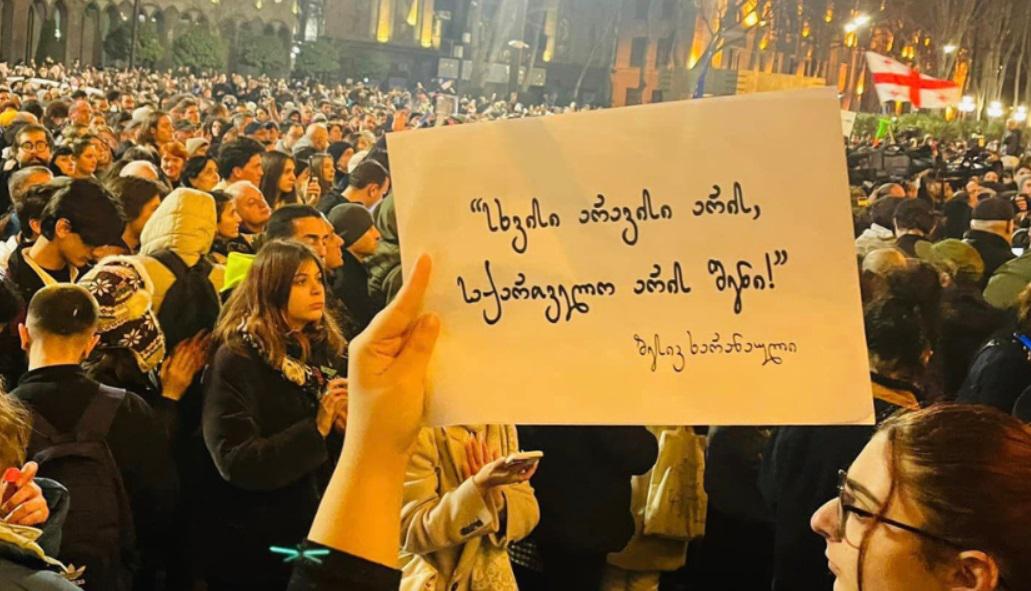 “სხვისი არავისი არის,
საქართველო არის შენი!”
ბესიკ ხარანაული